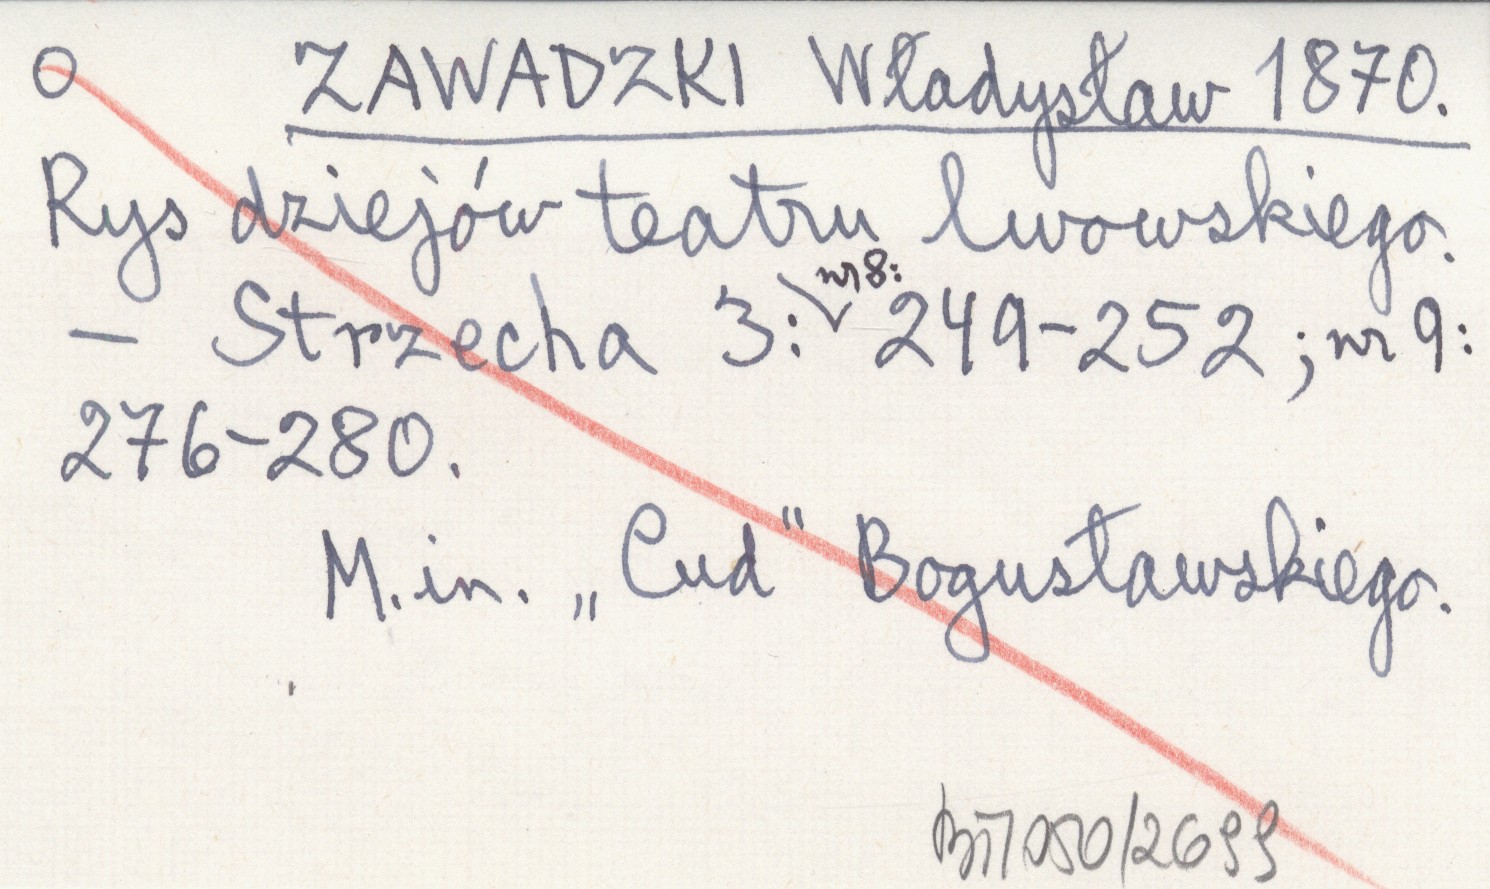 O ZAWADZKI Władysław 1870.
Rys dziejów teatru lwowskiego.
— Strzecha 3: nr 8: 249-252; nr 9:
276-280.
M.in. „Cud" Bogusławskiego.
050/2699